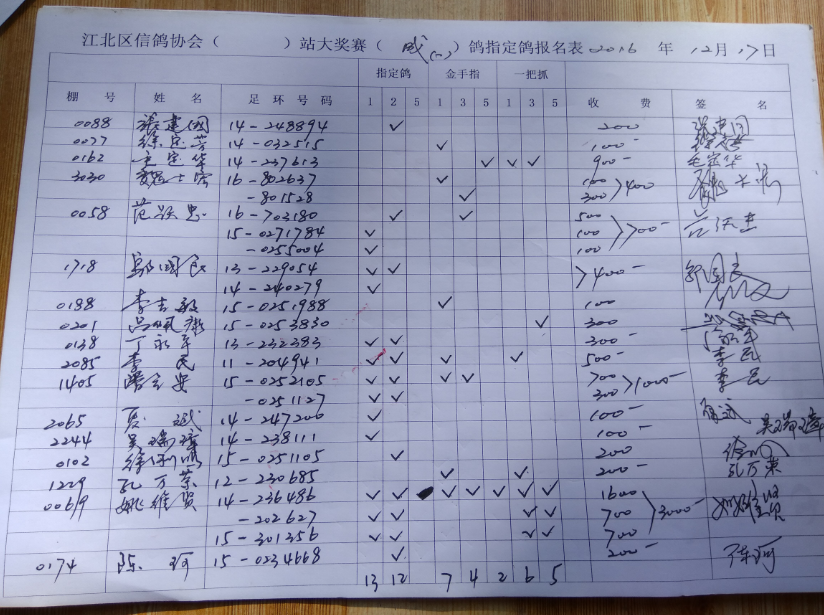 江北区信鸽协会（ ）站大奖赛（ 成(一) ）鸽指定鸽报名表 2016 年 12月17日
指定鸽 金手指 一把抓
棚 号 姓 名 足 环 号 码 1 2 5 1 3 5 1 3 5 收 费 签 名
0088 張建国 14-248894 ✓ 200 張建国
0077 徐 芳 14-032515 ✓ 100-
0162 毛宗华 14-237613 ✓ ✓ ✓ 900- 毛宗华
3030 魏士宏 16-802637 ✓ 100 >400-
-801528 ✓ 300
0058 范 忠 16-703180 ✓ ✓ 500
15-0271784 ✓ 100 >700-
-0255004 ✓ 100
1718 国民 13-229054 ✓ ✓ >400-
14-240279 ✓
0188 李吉敏 15-0251988 ✓ 100
0201 15-0253830 ✓ 300
0138 丁永年 13-232383 ✓ ✓ 300-
2085 李民 11-204941 ✓ ✓ ✓ ✓ 500- 李民
1405 安 15-0252105 ✓ ✓ ✓ ✓ 700 >1000-
-0251127 ✓ ✓ 300
2065 夏斌 14-247200 ✓ 100- 夏斌
2244 吴瑞璋 14-238111 ✓ 100- 吴瑞璋
0102 徐 15-0251105 ✓ 200
1229 孔万荣 12-230685 ✓ ✓ 200- 孔万荣
00619 姚维贤 14-236486 ✓ ✓ ✓ ✓ ✓ ✓ ✓ ✓ 1600
-202627 ✓ ✓ ✓ ✓ 700 >3000- 姚维贤
15-301356 ✓ ✓ ✓ ✓ 700
0174 陈珂 15-0234668 ✓ 200- 陈珂
13 12 7 4 2 6 5